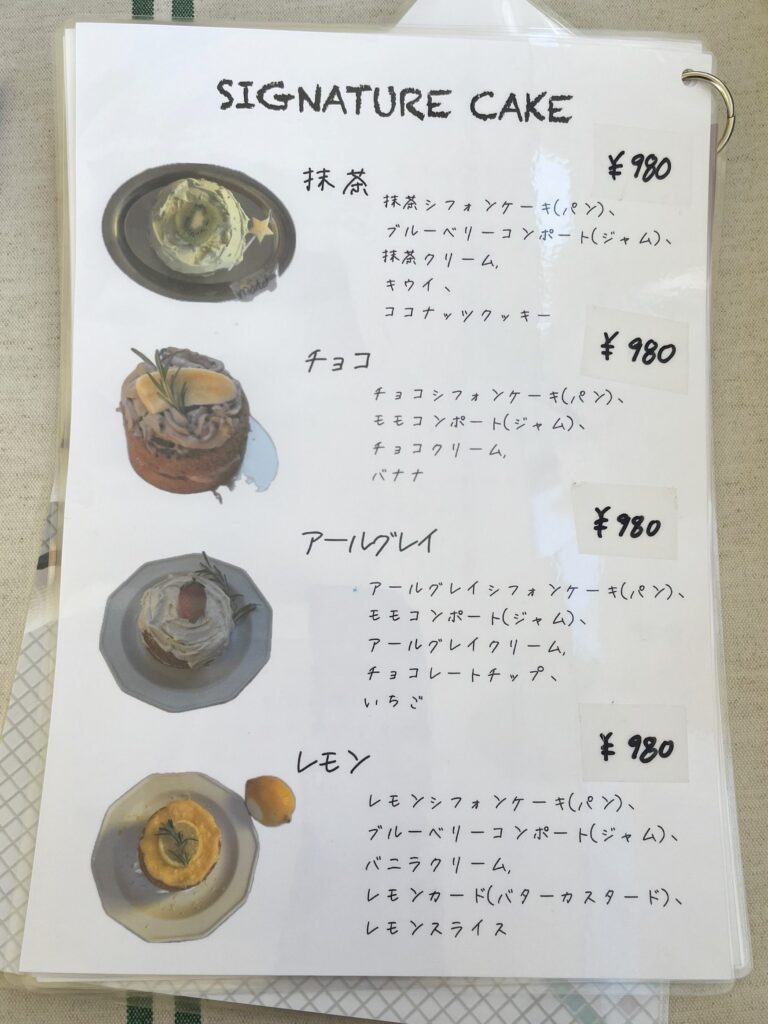 SIGNATURE CAKE
¥980
抹茶
抹茶シフォンケーキ(パン)、
ブルーベリーコンポート(ジャム)、
抹茶クリーム,
キウイ、
ココナッツクッキー
¥980
チョコ
チョコシフォンケーキ(パン)、
モモコンポート(ジャム)、
チョコクリーム,
バナナ
¥980
アールグレイ
アールグレイシフォンケーキ(パン)、
モモコンポート(ジャム)、
アールグレイクリーム,
チョコレートチップ、
いちご
¥980
レモン
レモンシフォンケーキ(パン)、
ブルーベリーコンポート(ジャム)、
バニラクリーム,
レモンカード(バターカスタード)、
レモンスライス